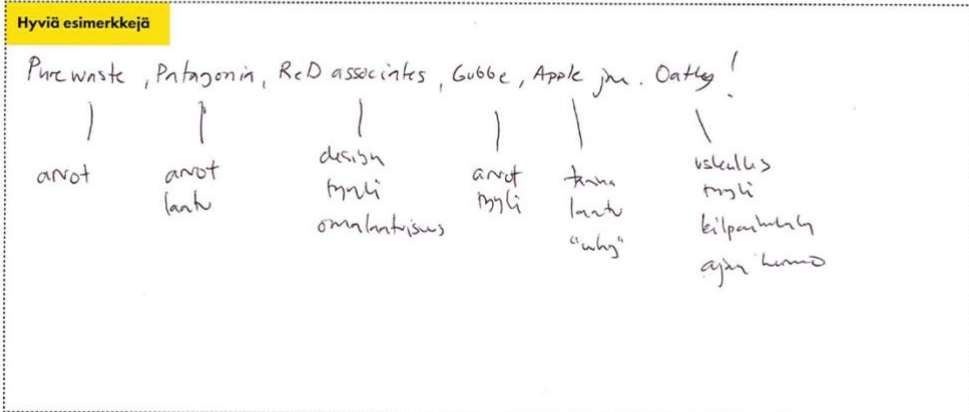 Hyviä esimerkkejä
Pure waste, Patagonia, ReD associates, Gubbe, Apple jne. Oatly!
arvot
arvot
laatu
design
tyyli
omalaatuisuus
arvot
tyyli
tarina
laatu
"why"
uskallus
tyyli
ajan hermo